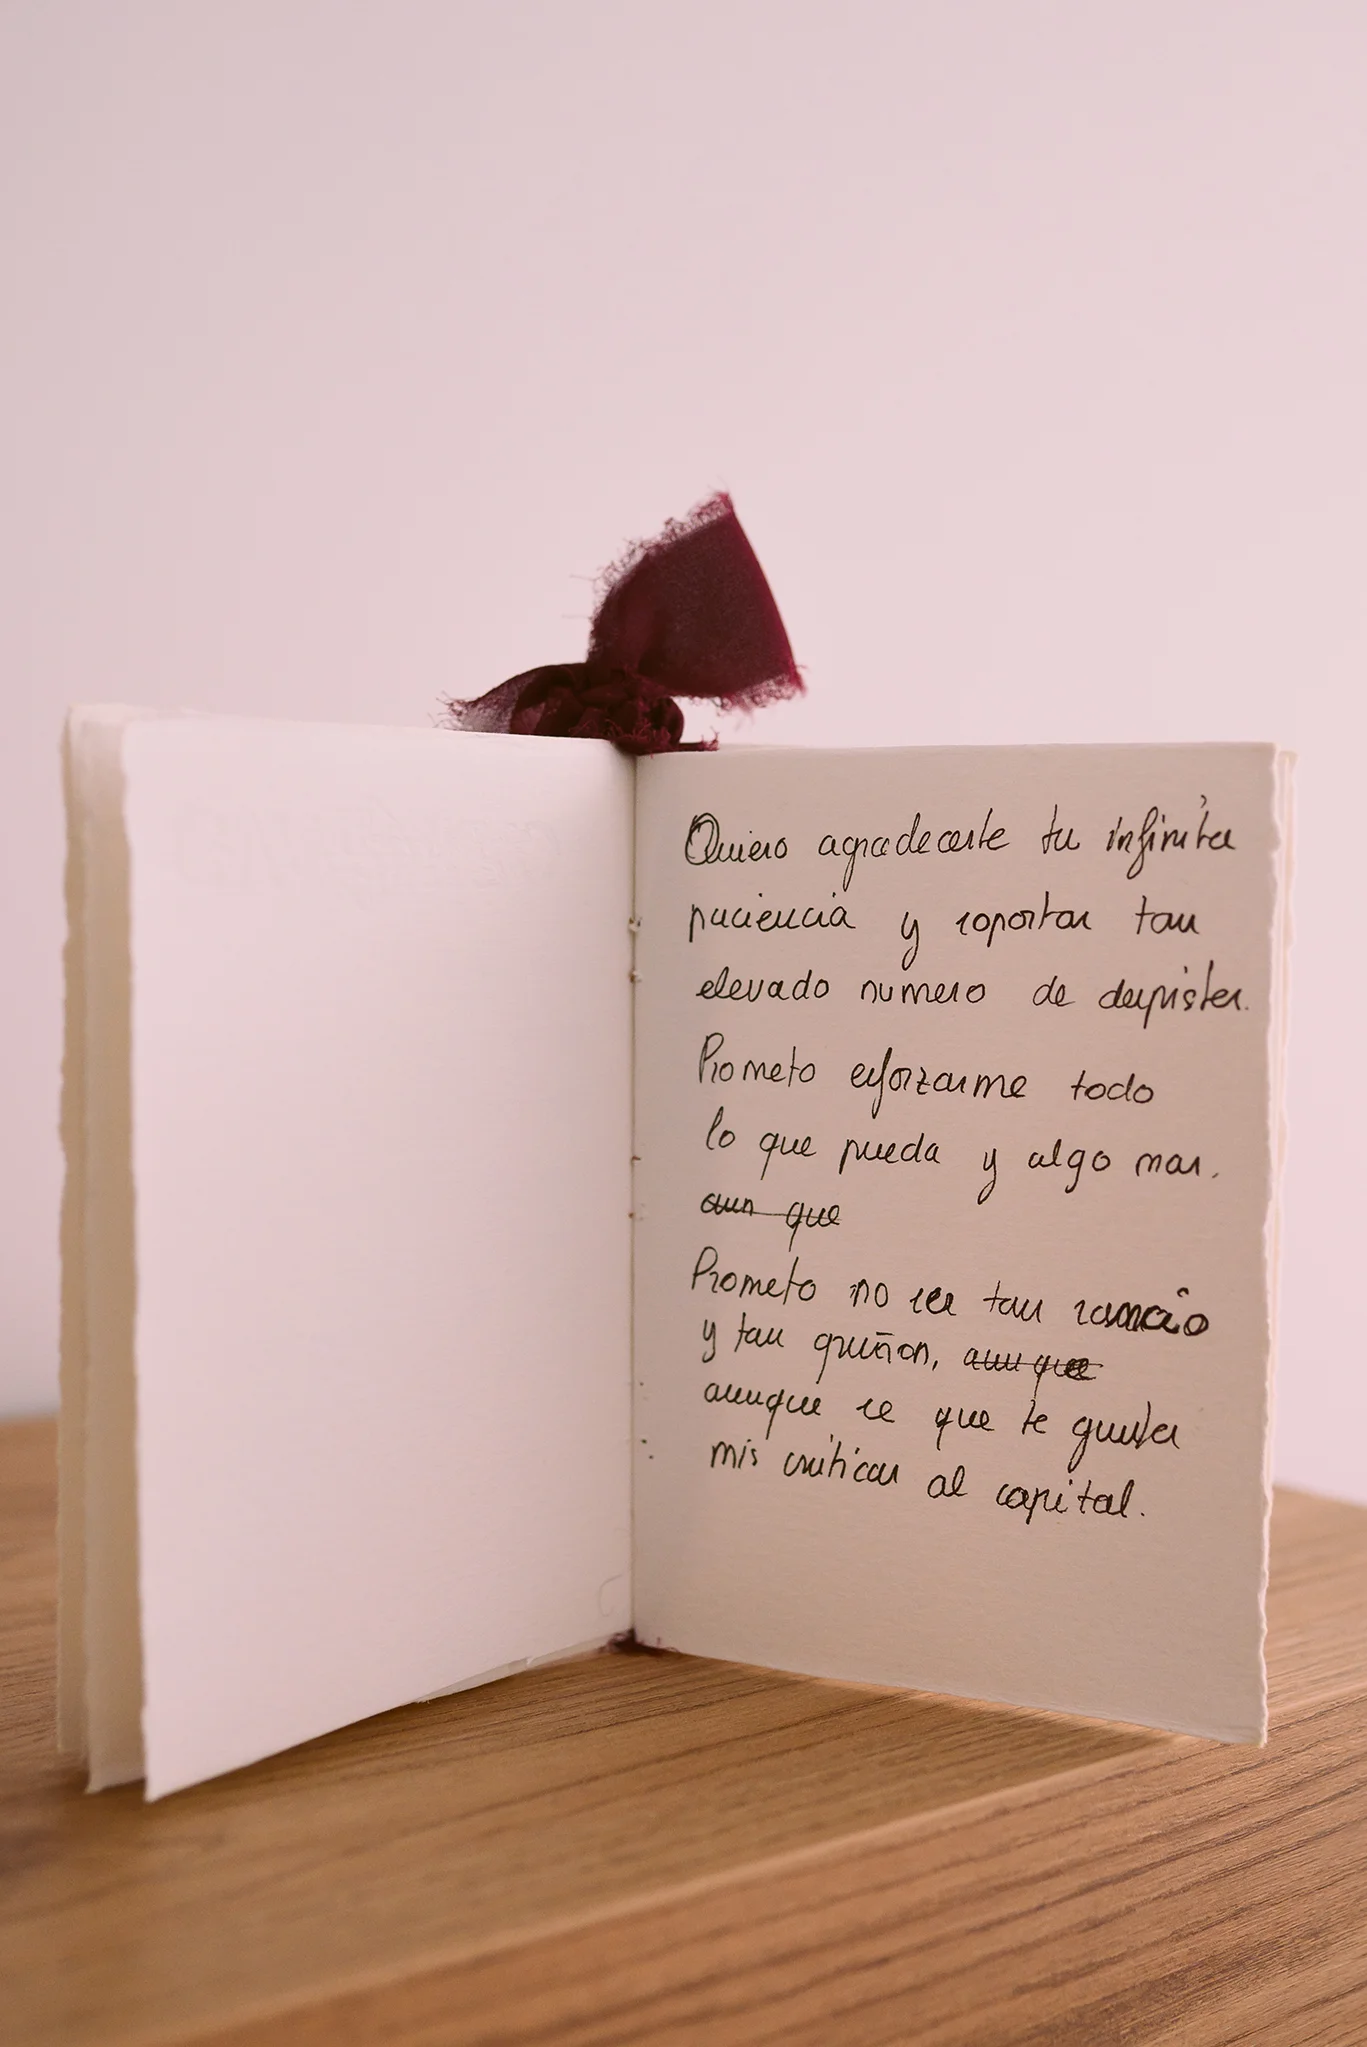 Quiero agradecerte tu infinita
paciencia y soportar tan
elevado numero de despistes.
Prometo esforzarme todo
lo que pueda y algo mas.
aun que
Prometo no ser tan rancio
y tan gruñon, aunque
aunque se que te gustan
mis criticas al capital.